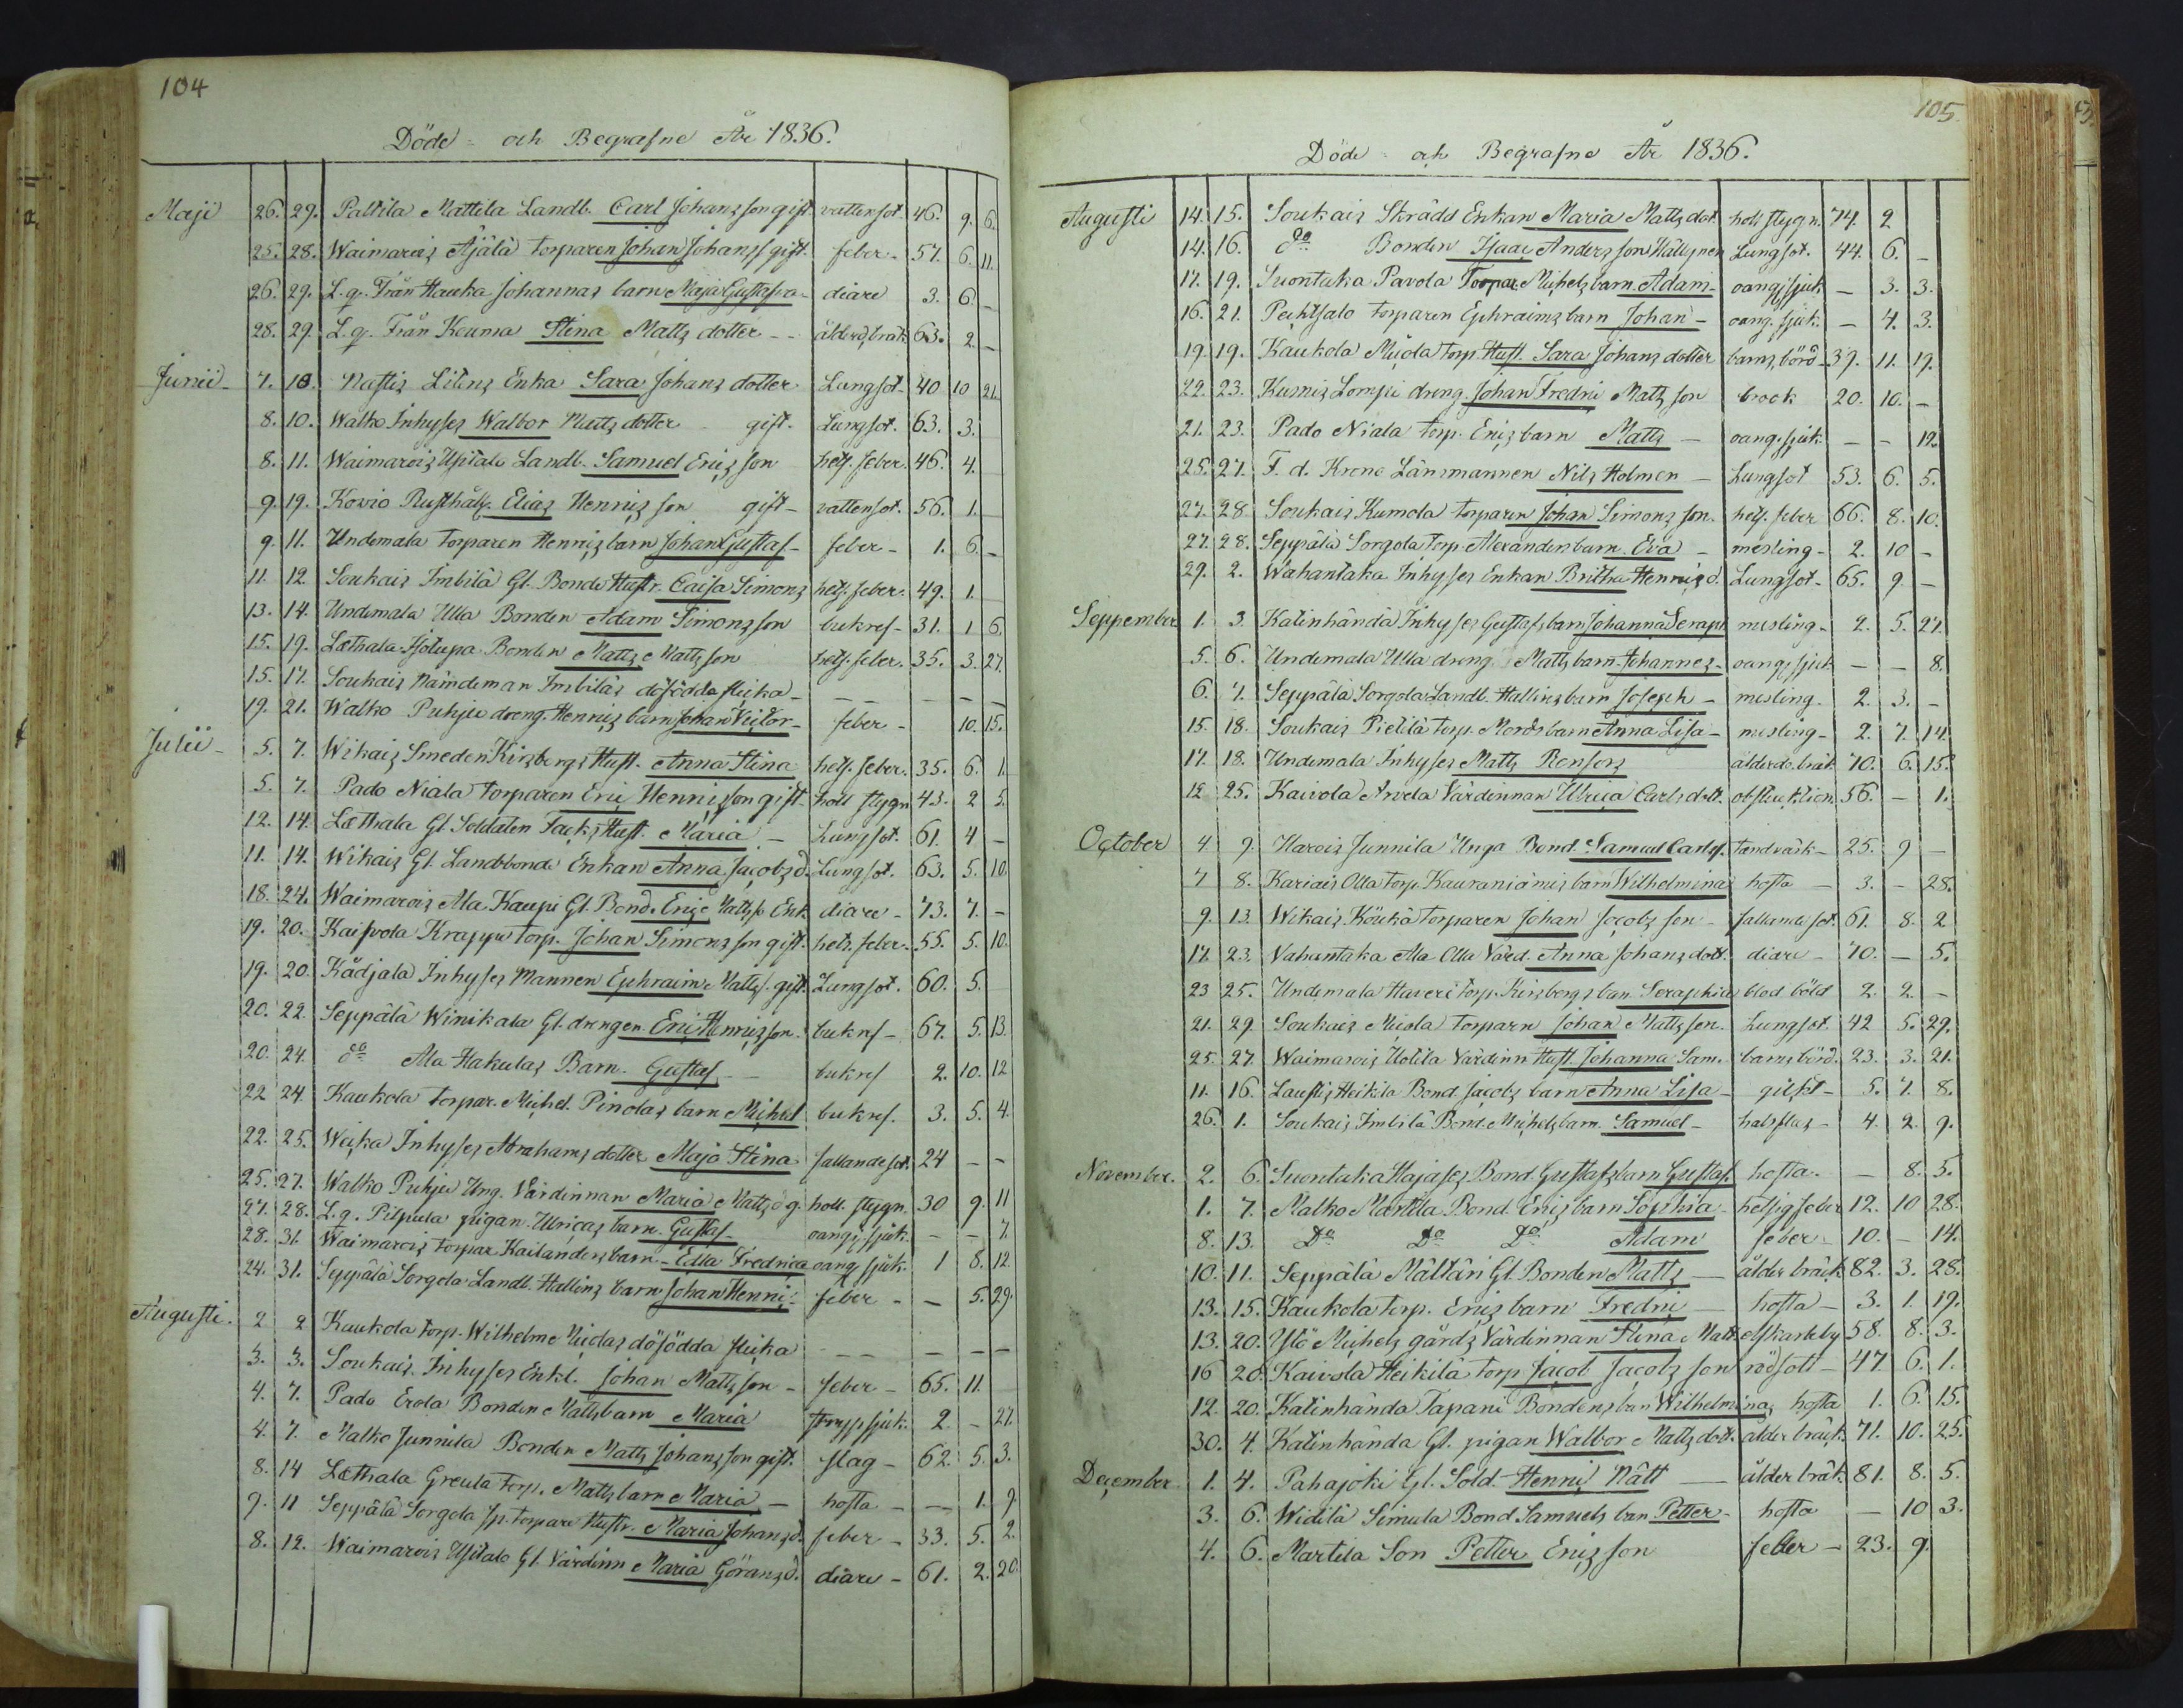 104
Döde - och Begrafne År 1836.
Maji 26. 29. Paltila Mattila Landb. Carl Johansson gift. vattensot. 46. 9. 6.
25. 28. Waimarois Äjälä torparen Johan Johanss gift. feber - 57. 6. 11.
26. 29. L. g. Från Hauka Johannas barn Maja Gustafva - diare 3. 6. -
28. 29. L. g. Från Keuma Stina Matts dotter - - ålderd. bräk. 63. 2. -
Junii - 7. 10. Naftis Litens Enka Sara Johans dotter Lungsot - 40 10 21.
8. 10. Walko Inhyses Walbor Matts dotter - gift. Lungsot. 63. 3.
8. 11. Waimarois Ysitalo Landb. Samuel Ericsson hets. feber. 46. 4.
9. 19. Kovio Rusthåll. Elias Henricsson gift - vattensot. 56. 1.
9. 11. Undemala torparen Henrics barn Johan Gustaf - feber - 1. 6. -
11. 12. Soukais Imbilä Gl. Bonde Hustr. Caisa Simons hets. feber. 49. 1.
13. 14. Undemala Ulla Bonden Adam Simonsson bukref - 31. 1 6.
15. 19. Læthala Isotupa Bonden Matts Mattsson hets. feber. 35. 3. 27.
15. 17. Soukais Nämdeman Imbiläs dösödda flicka - - - - -
19. 21. Walko Puhju dreng. Henrics barn Johan Victor - feber - 10. 15.
Julii - 5. 7. Wikais Smeden Kirsbergs Hust. Anna Stina hets. feber. 35. 6. 1.
5. 7. Pado Niala torparen Eric Henricsson gift - holl stygn 43. 2 5.
12. 14. Læthala Gl. Soldaten Tacks Hust. Maria - Lungsot. 61. 4 -
11. 14. Wikais Gl. Landtbonde Enkan Anna Jacobs d. Lungsot. 63. 5. 10.
18. 24. Waimarois Ala Kaupi Gl. Bond. Eric Mattss. Enk. diare - 73. 7. -
19. 20. Kaisvola Krappu torp. Johan Simonsson gift. hets. feber. 55. 5. 10.
19. 20. Kådjala Inhyses Mannen Ephraim Matts. gift. Lungsot. 60. 5.
20. 22. Seppälä Winikala Gl. drengen Eric Henricsson. bukref - 67. 5. 13.
20. 24. do Ala Hakulas Barn Gustaf - - bukref 2. 10. 12
22 24. Kaukola torpar. Michel Pinolas barn Michel bukref. 3. 5. 4.
22. 25. Wecka Inhyses Abrahams dotter Maja Stina fallandesot. 24 - -
25. 27. Walko Puhju Ung. Värdinnan Maria Matts d. g. holl. stygn. 30 9. 11
27. 28. L. g. Pilpula pigan Ulricas barn Gustaf - oang. sjuk. - - 7.
28. 31. Waimarois torpar Kailanders barn - Edla Fredrica oang. sjuk. 1 8. 12.
24. 31. Seppälä Sorgola Landb. Hallins barn Johan Henric - feber - - 5. 29.
Augusti. 2 2 Kaukola torp. Wilhelm Miclas dösödda flicka - - - - -
3. 3. Soukais Inhyses Enkl. Johan Mattsson - feber - 65. 11.
4. 7. Pado Erola Bonden Matts barn Maria strypsjuk. 2. - 27.
4. 7. Malko Junnila Bonden Matts Johansson gift. slag - 62. 5. 3.
8. 14 Læthala Greula torp. Matts barn Maria - hosta - - 1. 9.
9. 11 Seppälä Sorgola Sp. torpare Hustr. Maria Johans d. feber - 33. 5. 2.
8. 12. Waimarois Ysitalo Gl. Värdinn Maria Görans d. diare - 61. 2. 20.
105.
Döde - och Begrafne År 1836.
Augusti 14. 15. Soukais Skrädd Enkan Maria Matts dot. holl stygn. 74. 2
14. 16. do Bonden Isaac Andersson Hällynen Lungsot. 44. 6. -
17. 19. Suontaka Pavola Torpar. Michels barn Adam - oang. sjuk - 3. 3.
16. 21. Pechtsalo torparen Ephraims barn Johan - oang. sjuk. - 4. 3.
19. 19. Kaukola Micola torp. Hust. Sara Johans dotter barns börd - 39. 11. 19.
22. 23. Kusnis Lompi dreng Johan Fredric Mattsson brock 20. 10. -
21. 23. Pado Niala torp. Erics barn Matts - oang. sjuk. - - 12.
25. 27. F. d. Krono Länsmannen Nils Holmen - Lungsot 53. 6. 5.
27. 28 Soukais Kumola torparen Johan Simonsson. hets. feber 66. 8. 10.
27. 28. Seppälä Sorgola torp. Alexanders barn Eva - mesling - 2. 10 -
29. 2. Wahantaka Inhyses Enkan Britha Henrics d. Lungsot - 65. 9. -
Seppember 1. 3. Katinhända Inhyses Gustafs barn Johanna Seraph. mesling - 2. 5. 27.
5. 6. Undemala Ulla dreng Matts barn Johannes - oang. sjuk - - 8.
6. 7. Seppälä Sorgola Landb. Hallins barn Joseph - mesling - 2. 3. -
15. 18. Soukais Pietilä torp. Mords barn Anna Lisa - mesling - 2. 7. 14.
17. 18. Undemala Inhyses Matts Renfors ålderd. bräk. 70. 6. 15.
12 25. Kaivola Arvela Värdinnan Ulrica Carlsdott. obstruktion. 56. - 1.
October 4 9. Harois Junnila Unga Bond. Samuel Carls f. tandvärk - 25. 9 -
7 8. Kariais Olla torp. Kauraniämis barn Wilhelmina hosta - 3. - 28.
9. 13. Wikais Köukä torparen Johan Jacobsson - fallande sot. 61. 8. 2
17. 23. Vahantaka Ala Olla Värd. Anna Johans dott. diare - 70. - 5.
23 25. Undemala Haveri torp. Kirsbergs barn Seraphia blod böld 2. 2. -
21. 29. Soukais Micola torparn Johan Mattsson. Lungsot. 42 5. 29.
25. 27. Waimarois Uotila Värdinn Hust. Johanna Sam. barns börd. 23. 3. 21.
11. 16. Laustis Heikila Bond. Jacobs barn Anna Lisa - gikt - 5. 7. 8.
26. 1. Soukais Imbilä Bond. Michels barn Samuel - halsfluss - 4. 2. 9.
November. 2. 6. Suontaka Hajases Bond. Gustafs barn Gustaf. hosta - - 8. 5.
1. 7. Malko Marttila Bond. Erics barn Sophia - hetsig feber 12. 10 28.
8. 13. Do Do Do Adam feber - 10. - 14.
10. 11. Seppälä Mälläri Gl. Bonden Matts - ålder bräck. 82. 3. 28.
13. 15. Kaukola torp. Erics barn Fredric - hosta - 3. 1. 19.
13. 20. Yliö Michels gårds Värdinnan Stina Matt. 58. 8. 3.
16 20. Kaivola Heikilä torp Jacob Jacobs son rödsott - 47. 6. 1.
12. 20. Katinhända Tapani Bondens barn Wilhelmina hosta 1. 6. 15.
30. 4. Katinhända Gl. pigan Walbor Matts dott. ålder bräck. 71. 10. 25.
December. 1. 4. Pahajoki Gl. Sold. Henric Nätt - ålder bräk. 81. 8. 5.
3. 6. Widilä Simula Bond Samuels barn Petter - hosta - 10 3.
4. 6. Martila Son Petter Ericsson feber - 23. 9.